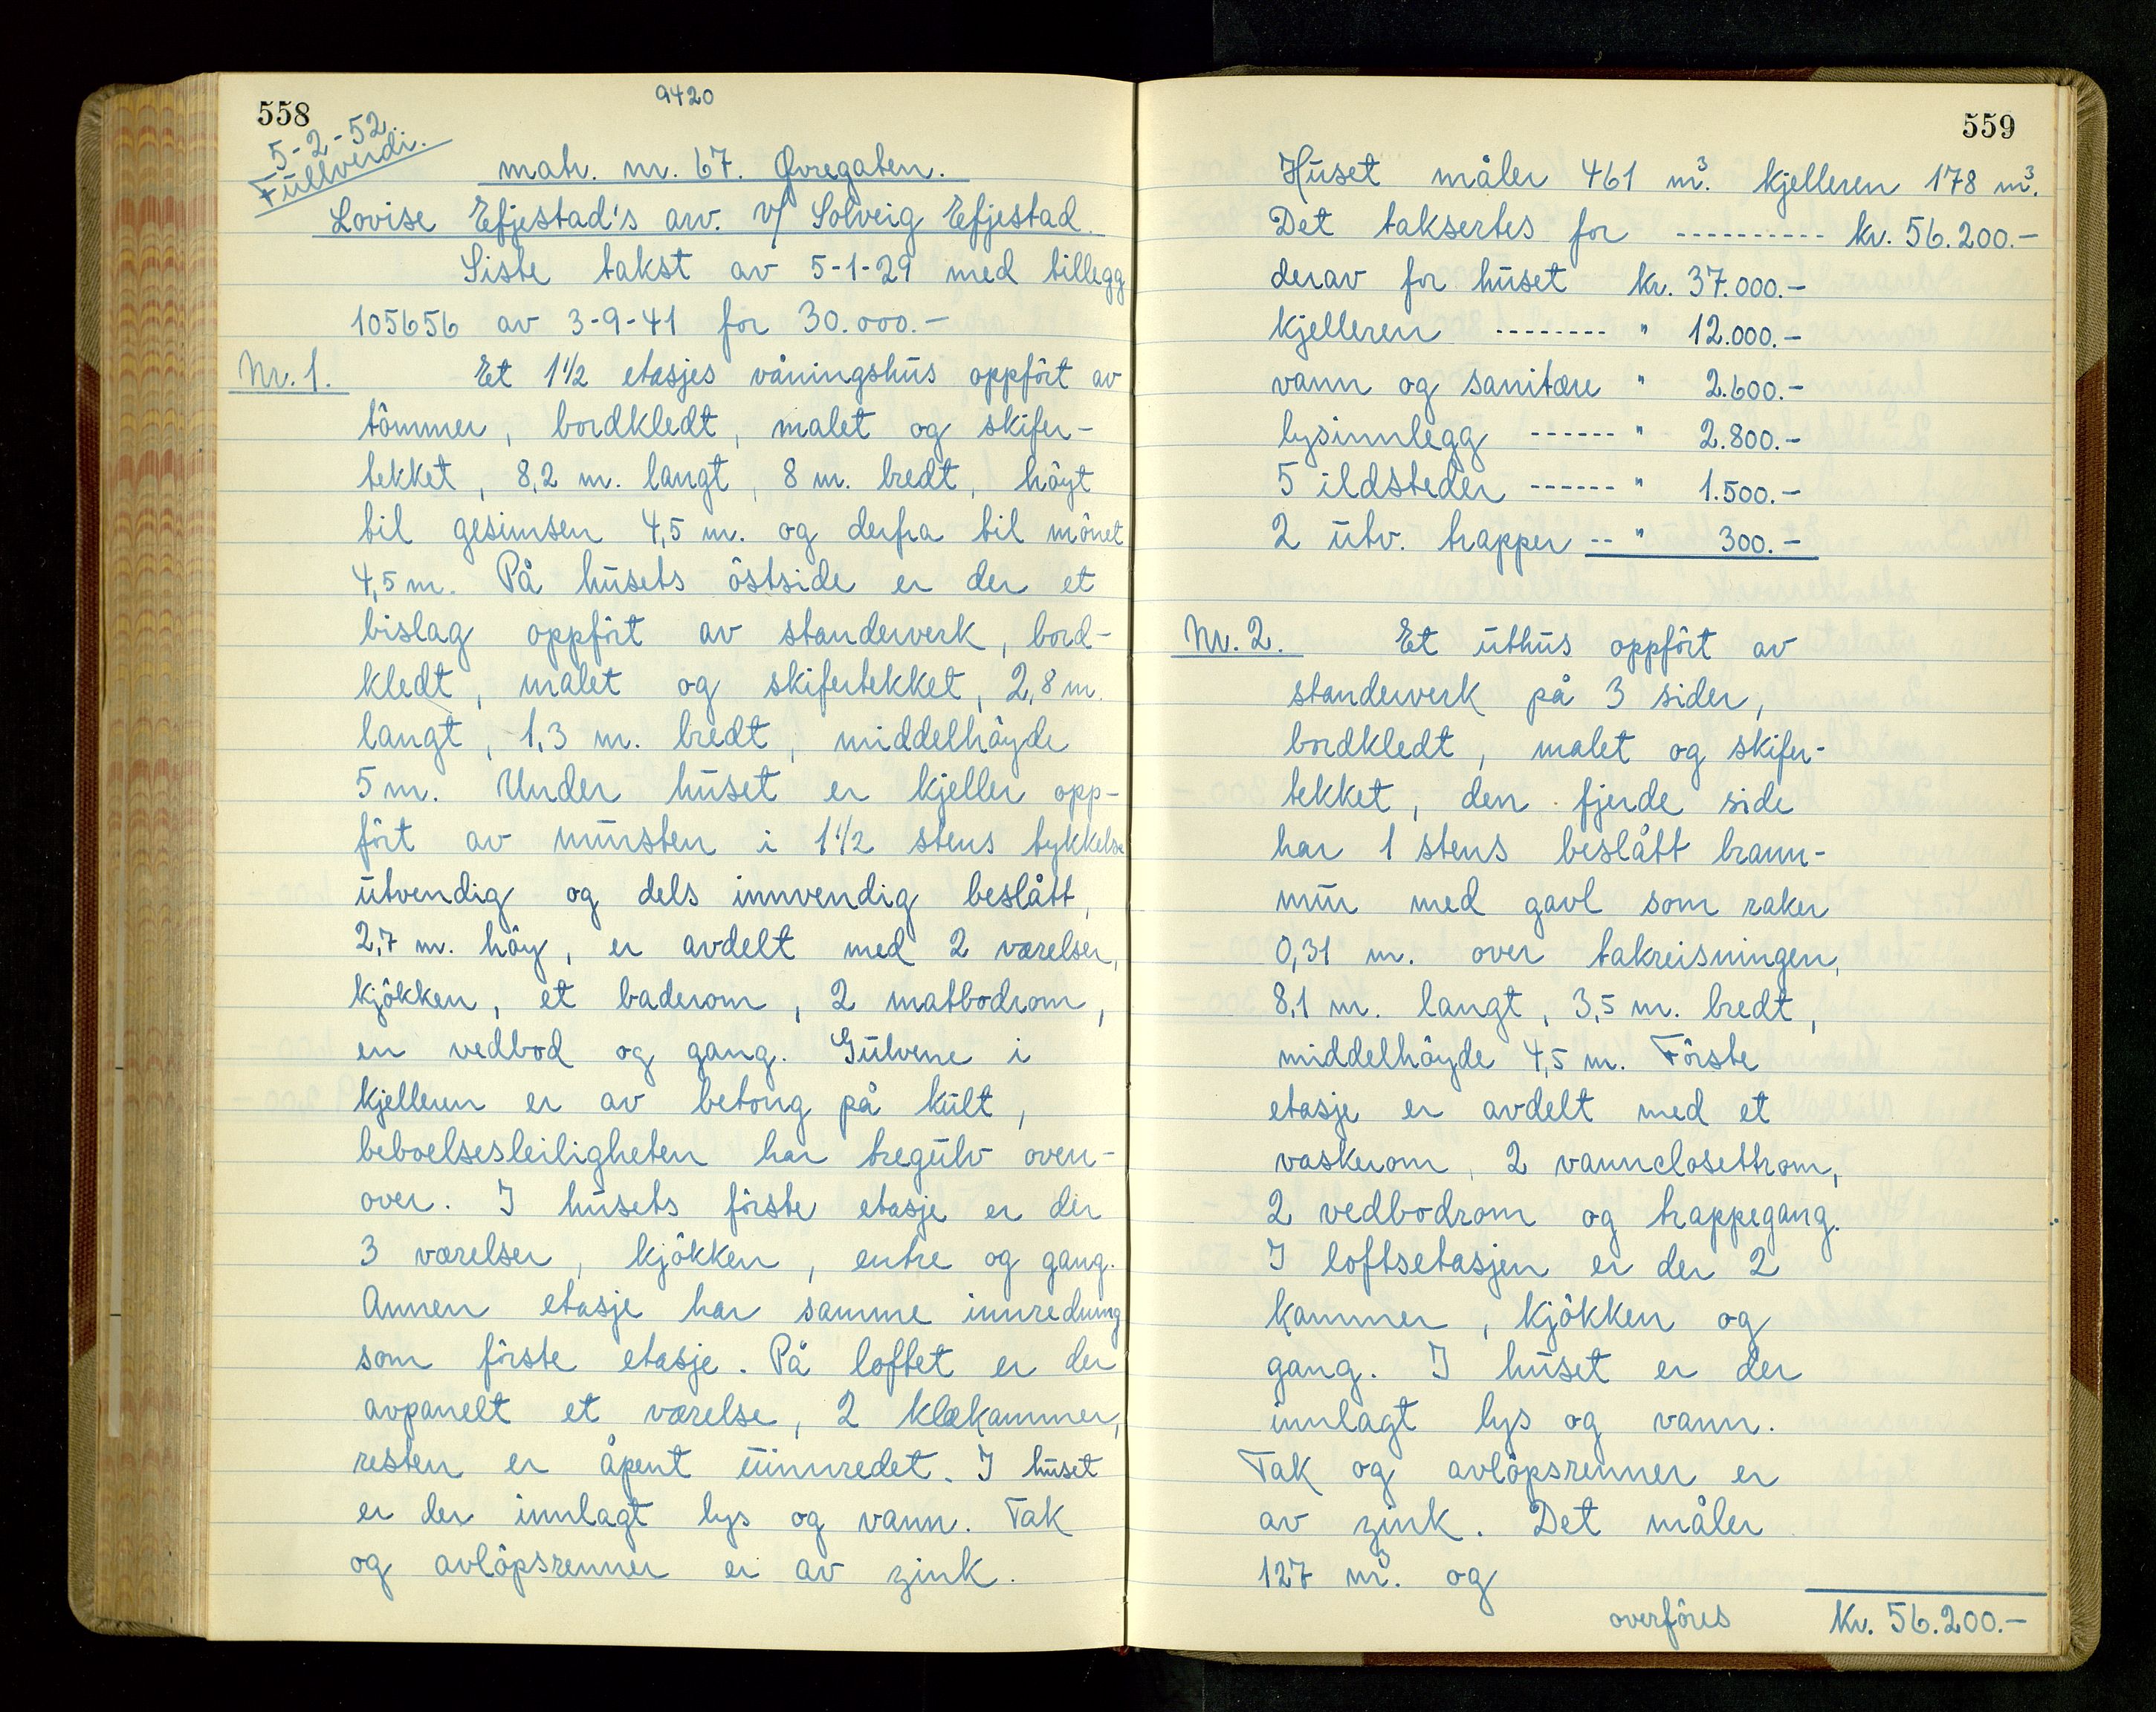 558
9420
5-2-52.
Fullverdi.
matr. nr. 67. Øvregaten.
Lovise Efjestad's arv. v/ Solveig Efjestad.
Siste takst av 5-1-29 med tillegg
105656 av 3-9-41 for 30.000.-
Nr. 1. Et 1½ etasjes våningshus oppført av
tømmer, bordkledt, malet og skifer-
tekket, 8,2 m. langt, 8 m. bredt, høyt
til gesimsen 4,5 m. og derfra til mønet
4,5 m. På husets østside er der et
bislag oppført av standerverk, bord-
kledt, malet og skifertekket, 2,8 m.
langt, 1,3 m. bredt, middelhøyde
5 m. Under huset er kjeller opp-
ført av mursten i 1½ stens tykkelse
utvendig og dels innvendig beslått,
2,7 m. høy, er avdelt med 2 værelser,
kjøkken, et baderom, 2 matbodrom,
en vedbod og gang. Gulvene i
kjelleren er av betong på kult,
beboelsesleiligheten har tregulv oven-
over. I husets første etasje er der
3 værelser, kjøkken, entre og gang.
Annen etasje har samme innredning
som første etasje. På loftet er der
avpanelt et værelse, 2 klækammer,
resten er åpent uinnredet. I huset
er der innlagt lys og vann. Tak
og avløpsrenner er av zink.
559
Huset måler 461 m³. kjelleren 178 m³.
Det taksertes for ---------- kr. 56.200.-
derav for huset kr. 37.000.-
kjelleren -------- " 12.000.-
vann og sanitære " 2.600.-
lysinnlegg ------ " 2.800.-
5 ildsteder ------ " 1.500.-
2 utv. trapper -- " 300.-
Nr. 2. Et uthus oppført av
standerverk på 3 sider,
bordkledt, malet og skifer-
tekket, den fjerde side
har 1 stens beslått brann-
mur med gavl som raker
0,31 m. over takreisningen,
8,1 m. langt, 3,5 m. bredt,
middelhøyde 4,5 m. Første
etasje er avdelt med et
vaskerom, 2 vannclosettrom,
2 vedbodrom og trappegang.
I loftsetasjen er der 2
kammer, kjøkken og
gang. I huset er der
innlagt lys og vann.
Tak og avløpsrenner er
av zink. Det måler
127 m³. og
overføres Kr. 56.200.-